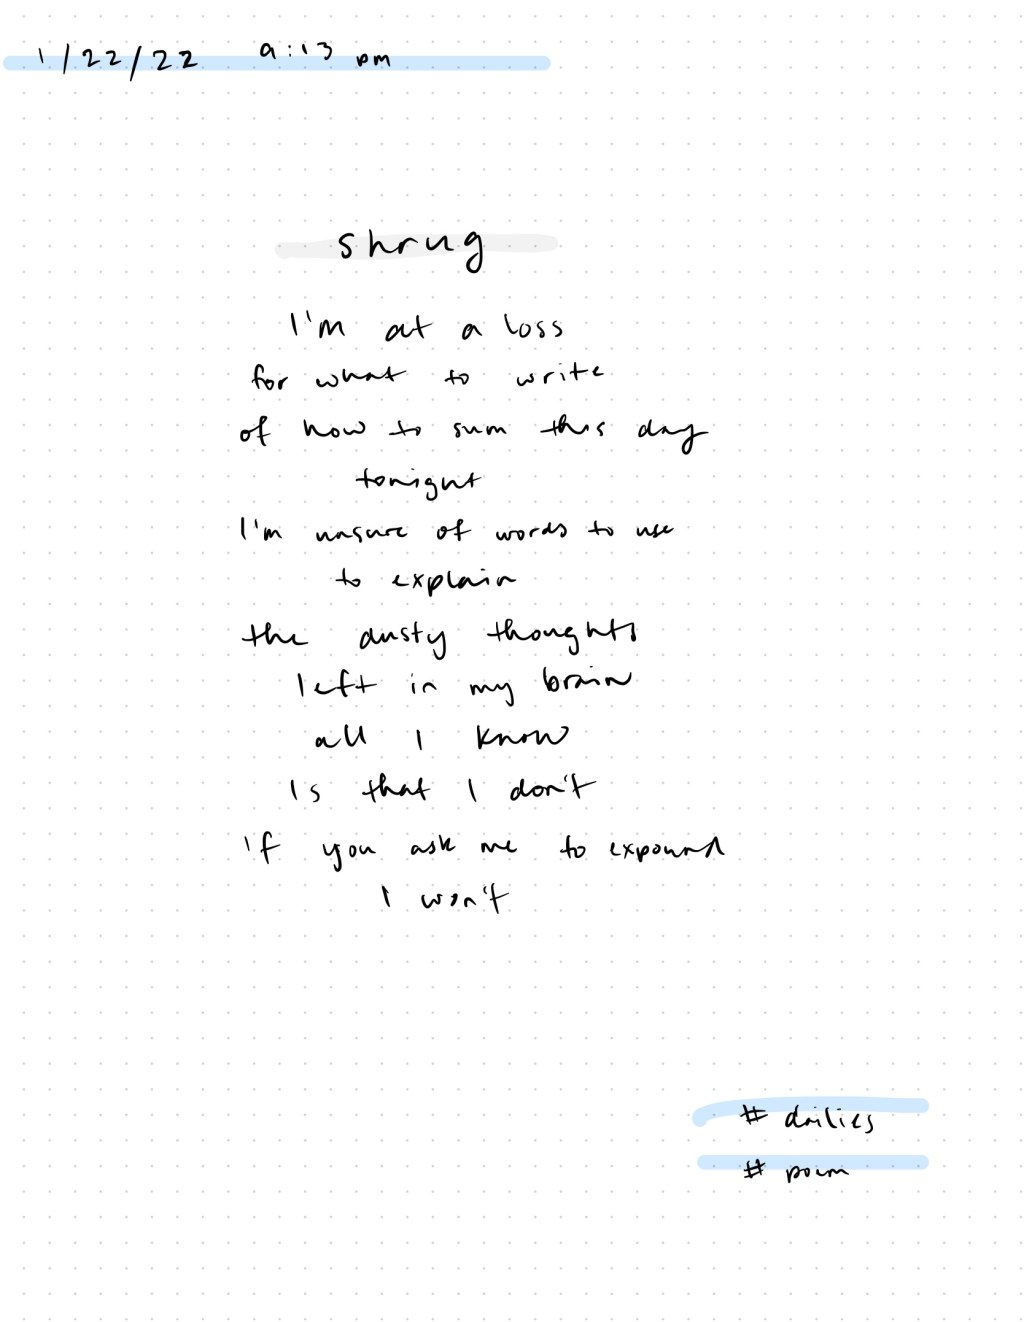 1/22/22 9:13 pm
shrug
I'm at a loss
for what to write
of how to sum this day
tonight
I'm unsure of words to use
to explain
the dusty thoughts
left in my brain
all I know
Is that I don't
if you ask me to expound
I won't
# dailies
# poem